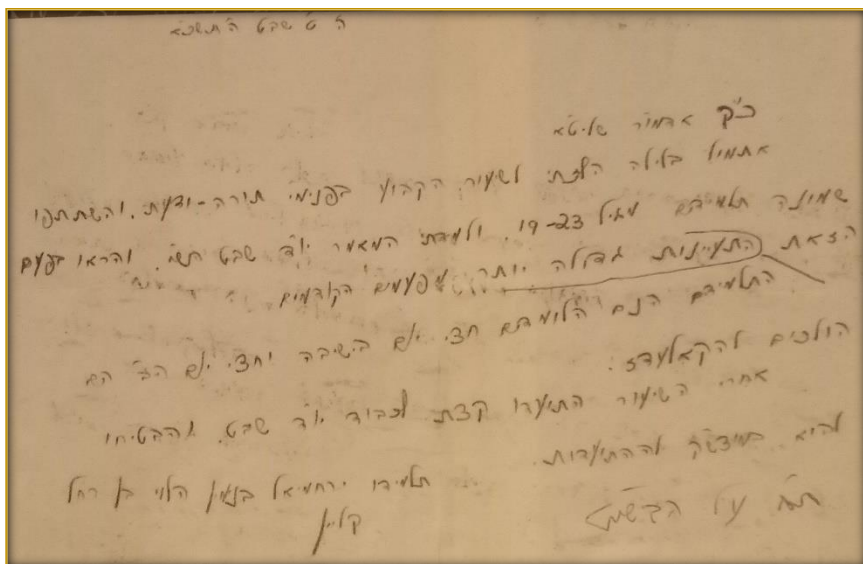 ה' ט' שבט ה'תשכ"א
כ"ק אדמו"ר שליט"א
אתמול בלילה הלכתי לשיעור הקבוע בפנימי' תורה-ודעת, והשתתפו
שמונה תלמידים מגיל 19-23. ולמדתי המאמר יו"ד שבט תש"י. והראו בפעם
הזאת התעיינות גדולה יותר מפעמים הקודמים
התלמידים הנם הלומדים חצי יום בישיבה וחצי יום הב' הם
הולכים להקאלעדז.
אחרי השיעור התועדו קצת לכבוד יו"ד שבט, והבטיחו
לבוא במוצש"ק להתועדות.
תלמידו ירחמיאל בנימין הלוי בן רחל
קליין
ת"ח על הבשו"ט